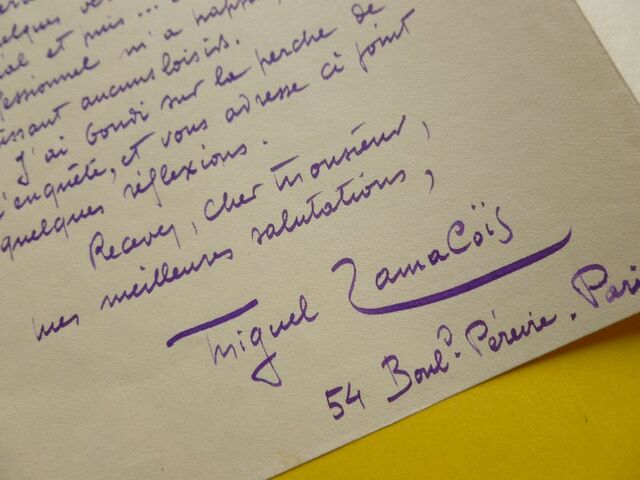 quelques
et puis...
fessionnel m'a rappo
issant aucuns loisirs.
J'ai bondi sur la perche de
l'enquête, et vous adresse ci joint
quelques réflexions.
Recevez, cher Monsieur,
mes meilleures salutations,
Miguel Zamacoïs
54 Boulᵈ. Péreire. Pari